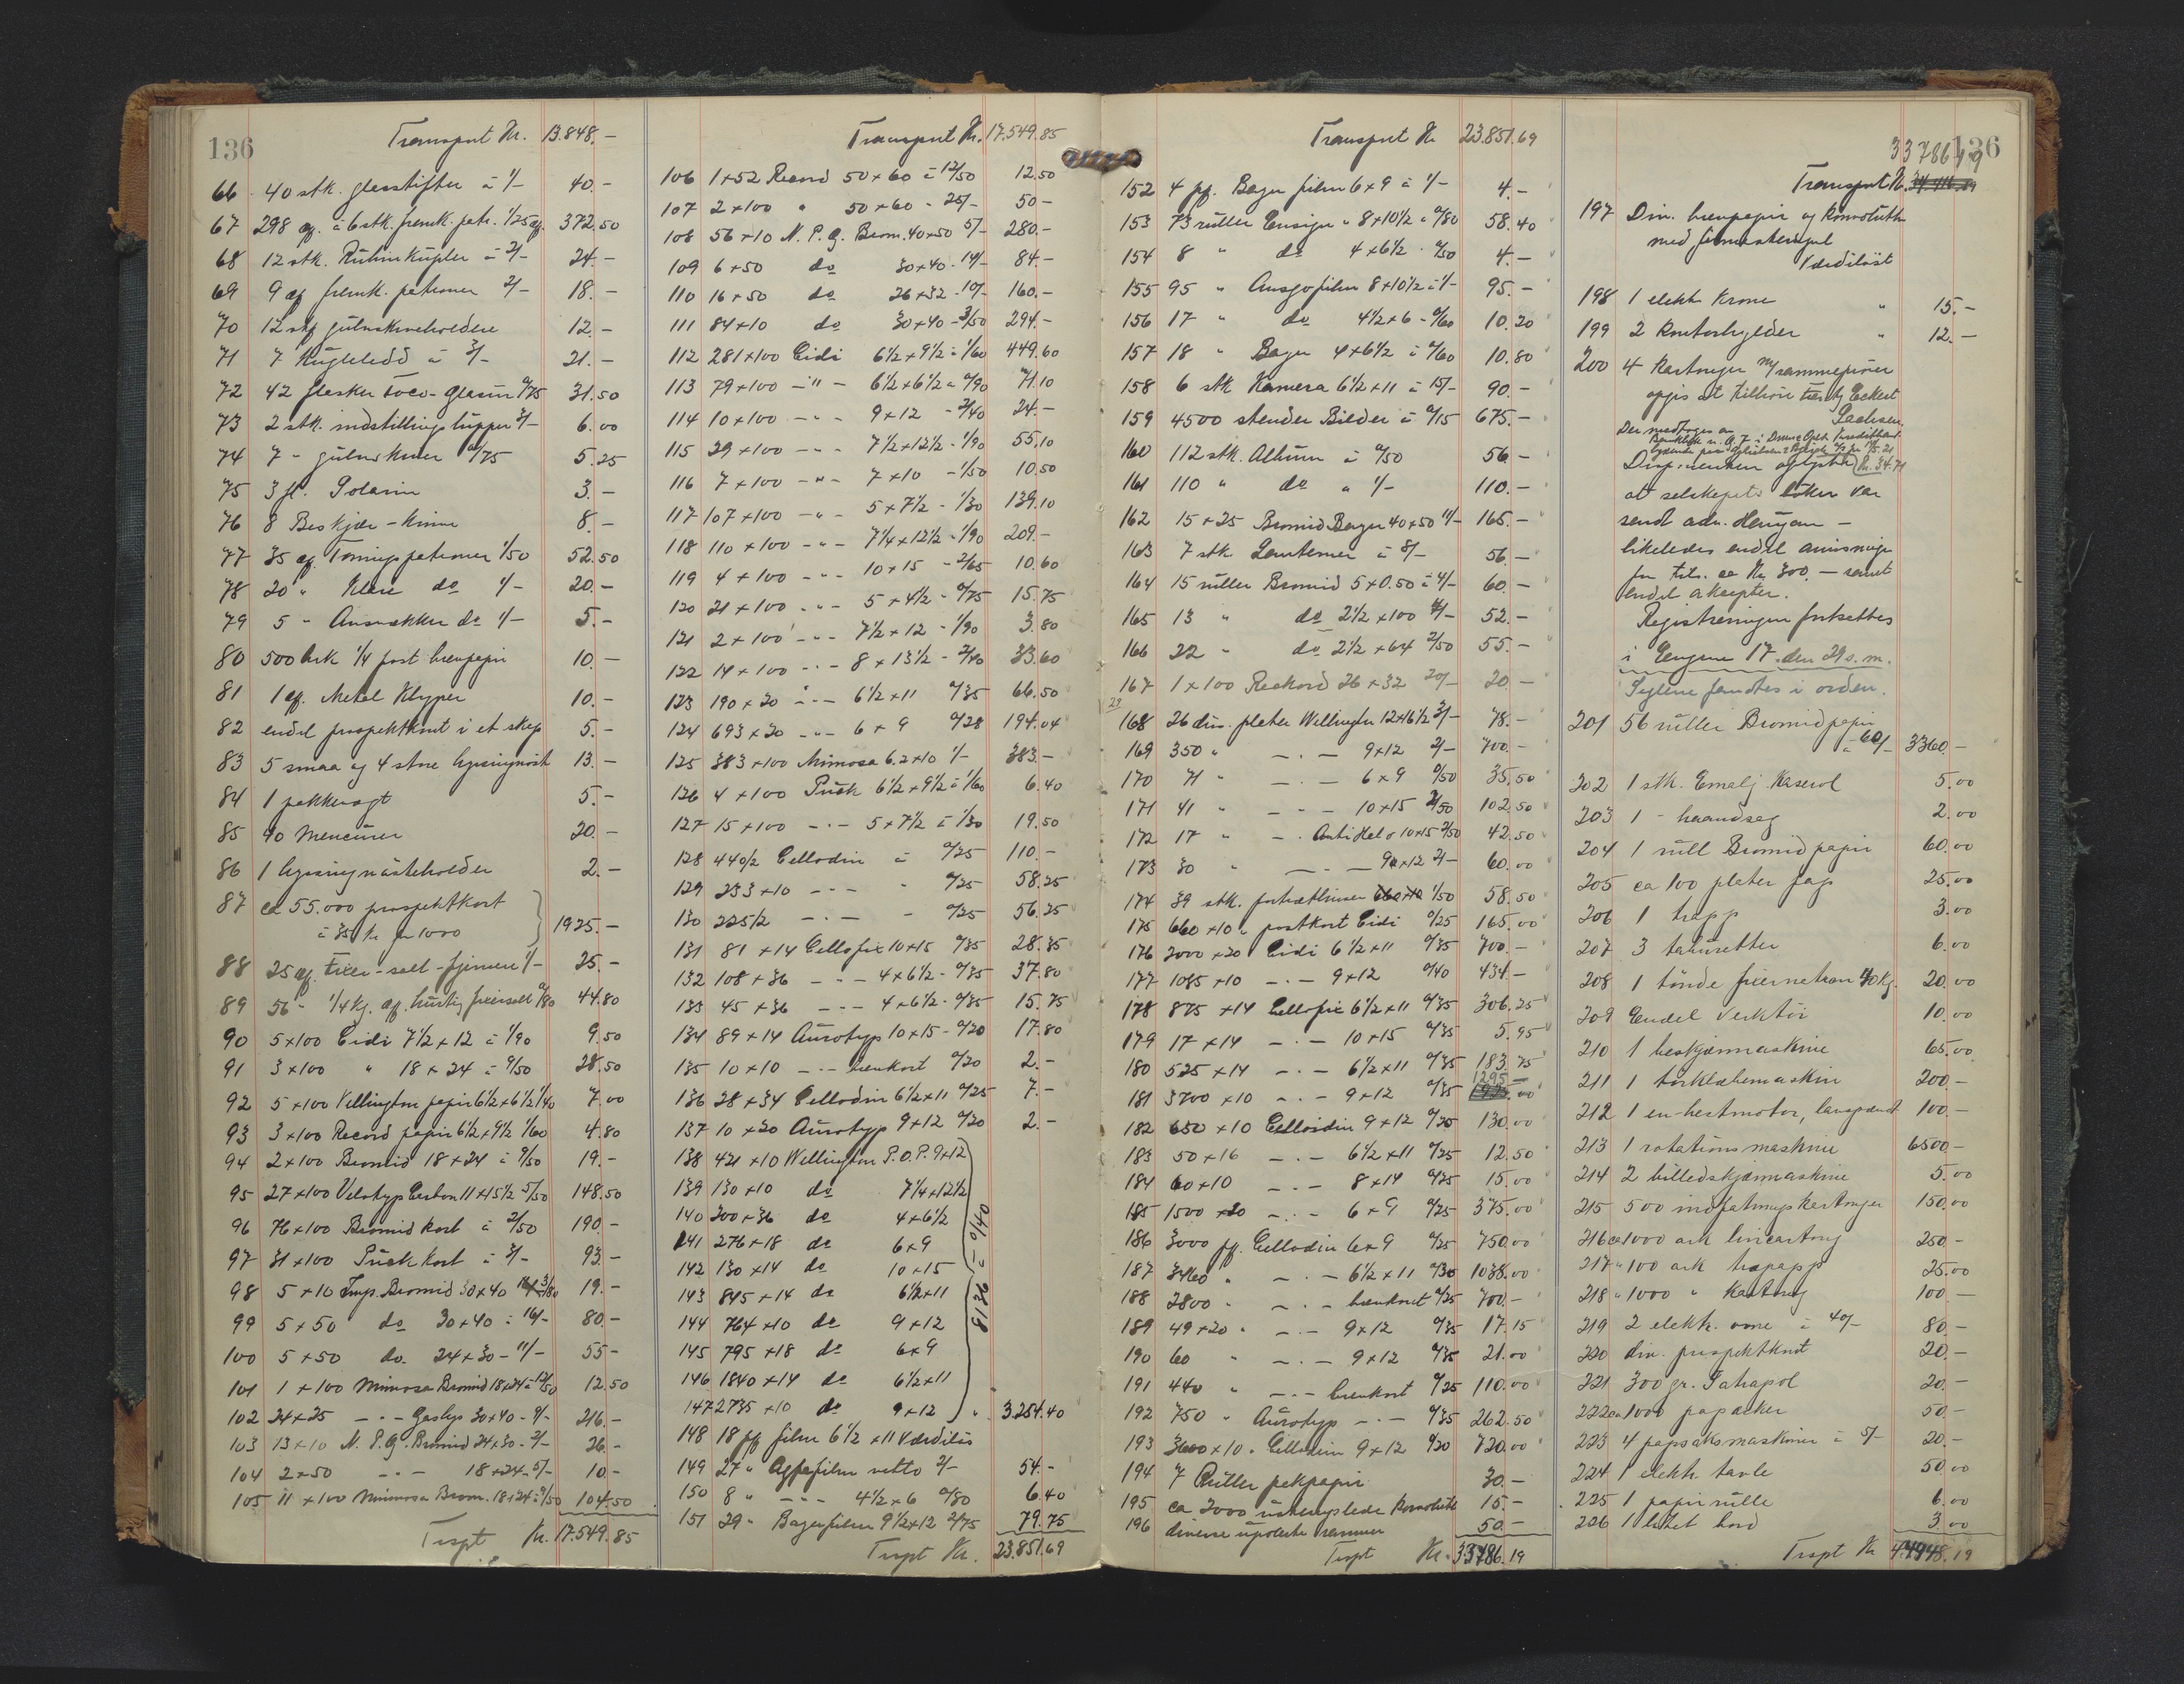 136
Transport Kr. 13.848.-
66 40 stk. glasstifter à 1/- 40.-
67 298 æs. à 6 stk. fremk. patr. 1/25 æs. 372.50
68 12 stk. 2/- 24.-
69 9 æs fremk. patroner 2/- 18.-
70 12 stk gulvskiveholdere 12.-
71 7 Kugleledd à 3/- 21.-
72 42 flasker Toco-Glasin 0/75 31.50
73 2 stk. indstillingslupper 3/- 6.00
74 7 " gulvskiver 0/75 5.25
75 3 fl. Solarin 3.-
76 8 Beskjær-kniver 8.-
77 35 æs. Toningspatroner 1/50 52.50
78 20 " Klare do 1/- 20.-
79 5 " do 1/- 5.-
80 500 ark 1/4 post brevpapir 10.-
81 1 æs. Metal Klyper 10.-
82 endel prospektkort i et skap 5.-
83 5 smaa og 4 store lysning 13.-
84 1 pakkevogt 5.-
85 40 mencurer 20.-
86 1 lysningmåsteholder 2.-
87 ca 55.000 prospektkort
à 35 kr. pr 1000 1925.-
88 25 æs. Fixer-salt-fjerner 1/- 25.-
89 56 " 1/4 kg. æs. hurtig fixersalt 0/80 44.80
90 5x100 Eidi 7½x12 à 1/90 9.50
91 3x100 " 18x24 à 9/50 28.50
92 5x100 Vellington papir 6½x6½ 1/40 7.00
93 3x100 Record papir 6½x9½ 1/60 4.80
94 2x100 Bromid 18x24 à 9/50 19.-
95 27x100 Velotyp Carbon 11x15½ 5/50 148.50
96 76x100 Bromid kort à 2/50 190.-
97 31x100 Pück kort à 3/- 93.-
98 5x10 Imp. Bromid 30x40 3/80 19.-
99 5x50 do 30x40 à 16/- 80.-
100 5x50 do. 24x30 - 11/- 55.-
101 1x100 Mimosa Bromid 18x24 à 12/50 12.50
102 24x25 -"- Gaslys 30x40 - 9/- 216.-
103 13x10 N.P.G. Bromid 24x30 - 2/- 26.-
104 2x50 -"- 18x24 - 5/- 10.-
105 11x100 Mimosa Brom. 18x24 à 9/50 104.50
Trspt Kr. 17.549.85
Transport Kr. 17.549.85
106 1x52 Record 50x60 à 12/50 12.50
107 2x100 " 50x60 - 25/- 50.-
108 56x10 N.P.G. Brom. 40x50 5/- 280.-
109 6x50 do 30x40 - 14/- 84.-
110 16x50 do 26x32 - 10/- 160.-
111 84x10 do 30x40 - 3/50 294.-
112 281x100 Eidi 6½x9½ à 1/60 449.60
113 79x100 -"- 6½x6½ à 0/90 71.10
114 10x100 -"- 9x12 - 2/40 24.-
115 29x100 -"- 7½x12½ - 1/90 55.10
116 7x100 -"- 7x10 - 1/50 10.50
117 107x100 -"- 5x7½ - 1/30 139.10
118 110x100 -"- 7¼x12½ - 1/90 209.-
119 4x100 -"- 10x15 - 2/65 10.60
120 21x100 -"- 5x4½ - 0/75 15.75
121 2x100 -"- 7½x12 - 1/90 3.80
122 14x100 -"- 8x13½ - 2/40 33.60
123 190x20 -"- 6½x11 0/35 66.50
124 693x20 -"- 6x9 0/28 194.04
125 383x100 Mimosa 6.2x10 1/- 383.-
126 4x100 Pück 6½x9½ à 1/60 6.40
127 15x100 -"- 5x7½ à 1/30 19.50
128 440/2 Cellodin à 0/25 110.-
129 233x10 -"- " 0/25 58.25
130 225/2 -"- - 0/25 56.25
131 81x14 Cellofix 10x15 0/35 28.35
132 108x36 -"- 4x6½ - 0/35 37.80
133 45x36 -"- 4x6½ - 0/35 15.75
134 89x14 Aurotyp 10x15 - 0/20 17.80
135 10x10 -"- brevkort 0/20 2.-
136 28x34 Cellodin 6½x11 0/25 7.-
137 10x20 Aurotyp 9x12 0/20 2.-
138 421x10 Wellington P.O.P. 9x12
139 130x10 do 7¼x12½
140 200x36 do 4x6½
141 276x18 do 6x9
142 130x14 do 10x15
143 845x14 do 6½x11
144 764x10 do 9x12
145 795x18 do 6x9
146 1840x14 do 6½x11
147 2735x10 do 9x12 " 3.254.40
8136 à 0/40
148 18 pk film 6½x11 Værdiløs
149 27 " Agfafilm netto 2/- 54.-
150 8 " -"- 4½x6 0/80 6.40
151 29 " Bayerfilm 9½x12 2/75 79.75
Trspt Kr. 23.851.69
Transport Kr 23.851.69
152 4 pk. Bayer film 6x9 à 1/- 4.-
153 73 ruller Ensign " 8x10½ à 0/80 58.40
154 8 " do 4x6½ - 0/50 4.-
155 95 " Ansgofilm 8x10½ à 1/- 95.-
156 17 " do 4½x6 - 0/60 10.20
157 18 " Bayer 4x6½ à 0/60 10.80
158 6 stk Kamera 6½x11 à 15/- 90.-
159 4500 stender Bilder à 0/15 675.-
160 112 stk. Album à 0/50 56.-
161 110 " do " 1/- 110.-
162 15x25 Bromid Bayer 40x50 11/- 165.-
163 7 stk Lanterner à 8/- 56.-
164 15 ruller Bromid 5x0.50 à 4/- 60.-
165 13 " do 2½x100 4/- 52.-
166 22 " do 2½x64 2/50 55.-
167 1x100 Reckord 26x32 20/- 20.-
29
168 26 dus. plater Wellington 12x16½ 3/- 78.-
169 350 " -"- 9x12 2/- 700.-
170 71 " -"- 6x9 0/50 35.50
171 41 " -"- 10x15 2/50 102.50
172 17 " -"- Anti Halo 10x15 2/50 42.50
173 30 " -"- 9x12 2/- 60.00
174 39 stk. portrætlinser 1/50 58.50
175 660x10 " postkort Eidi 0/25 165.00
176 2000x20 " Eidi 6½x11 0/35 700.-
177 1085x10 -"- 9x12 0/40 434.-
178 875x14 Cellofix 6½x11 0/35 306.25
179 17x14 -"- 10x15 0/35 5.95
180 525x14 -"- 6½x11 0/35 183.75
181 3700x10 -"- 9x12 0/35 1295.-
182 650x10 Celloidin 9x12 0/20 130.00
183 50x16 -"- 6½x11 0/25 12.50
184 60x10 -"- 8x14 0/25 15.00
185 1500x20 -"- 6x9 0/25 375.00
186 3000 pk. Cellodin 6x9 0/25 750.00
187 3460 " -"- 6½x11 0/30 1038.00
188 2800 " -"- brevkort 0/25 700.-
189 49x20 " -"- 9x12 0/35 17.15
190 60 " -"- 9x12 0/35 21.00
191 440 " -"- brevkort 0/25 110.00
192 750 " Aurotyp -"- 0/35 262.50
193 3600x10 " Cellodin 9x12 0/20 720.00
194 7 Ruller pakpapir 30.-
195 ca 2000 ustemplede konvolutt 15.-
196 diverse upolerte rammer 50.-
Trspt Kr. 33786.19
136
33786.19
Transport Kr.
197 Div. brevpapir og konvolutter
med firmastempel
Værdiløst
198 1 elektr. Krone " 15.-
199 2 Kontorhylder " 12.-
200 4 Kartonger m/rammeprøver
opgis at tilhøre Eckert
Sachsen
Der medtoges en
Kr. 34.71
Disponenten oplyste
at selskapets bøker var
sendt adv. Heujan -
likeledes endel anvisninger
for tils. ca Kr. 300.- samt
endel aksepter.
Registreringen fortsettes
i Eugene 17. den 29 s.m.
Seglene fandtes i orden.
201 56 ruller Bromidpapir
à 60/- 3360.-
202 1 stk. Emalj. Kaserol 5.00
203 1 - haandsag 2.00
204 1 rull Bromidpapir 60.00
205 ca 100 plater papp 25.00
206 1 trapp 3.00
207 3 taburetter 6.00
208 1 tønde fixernatron 40 kg. 20.00
209 Endel Verktøi 10.00
210 1 beskjærmaskine 65.00
211 1 tørklæbemaskin 200.-
212 1 en-hestmotor, lavspændt 100.-
213 1 rotationsmaskine 6500.-
214 2 billedskjærmaskine 5.00
215 500 indfatningskartonger 150.00
216 ca 1000 ark lincartong 250.-
217 " 100 ark trapapp 25.00
218 " 1000 " Kartong 100.-
219 2 elektr. ovne à 40/- 80.-
220 div. prospektkort 20.-
221 300 gr. Satrapol 20.-
222 ca 1000 papæsker 50.-
223 4 papsaksmaskiner à 5/- 20.-
224 1 elektr. tavle 50.00
225 1 papir rulle 6.00
226 1 litet bord 3.00
Trspt Kr 44948.19